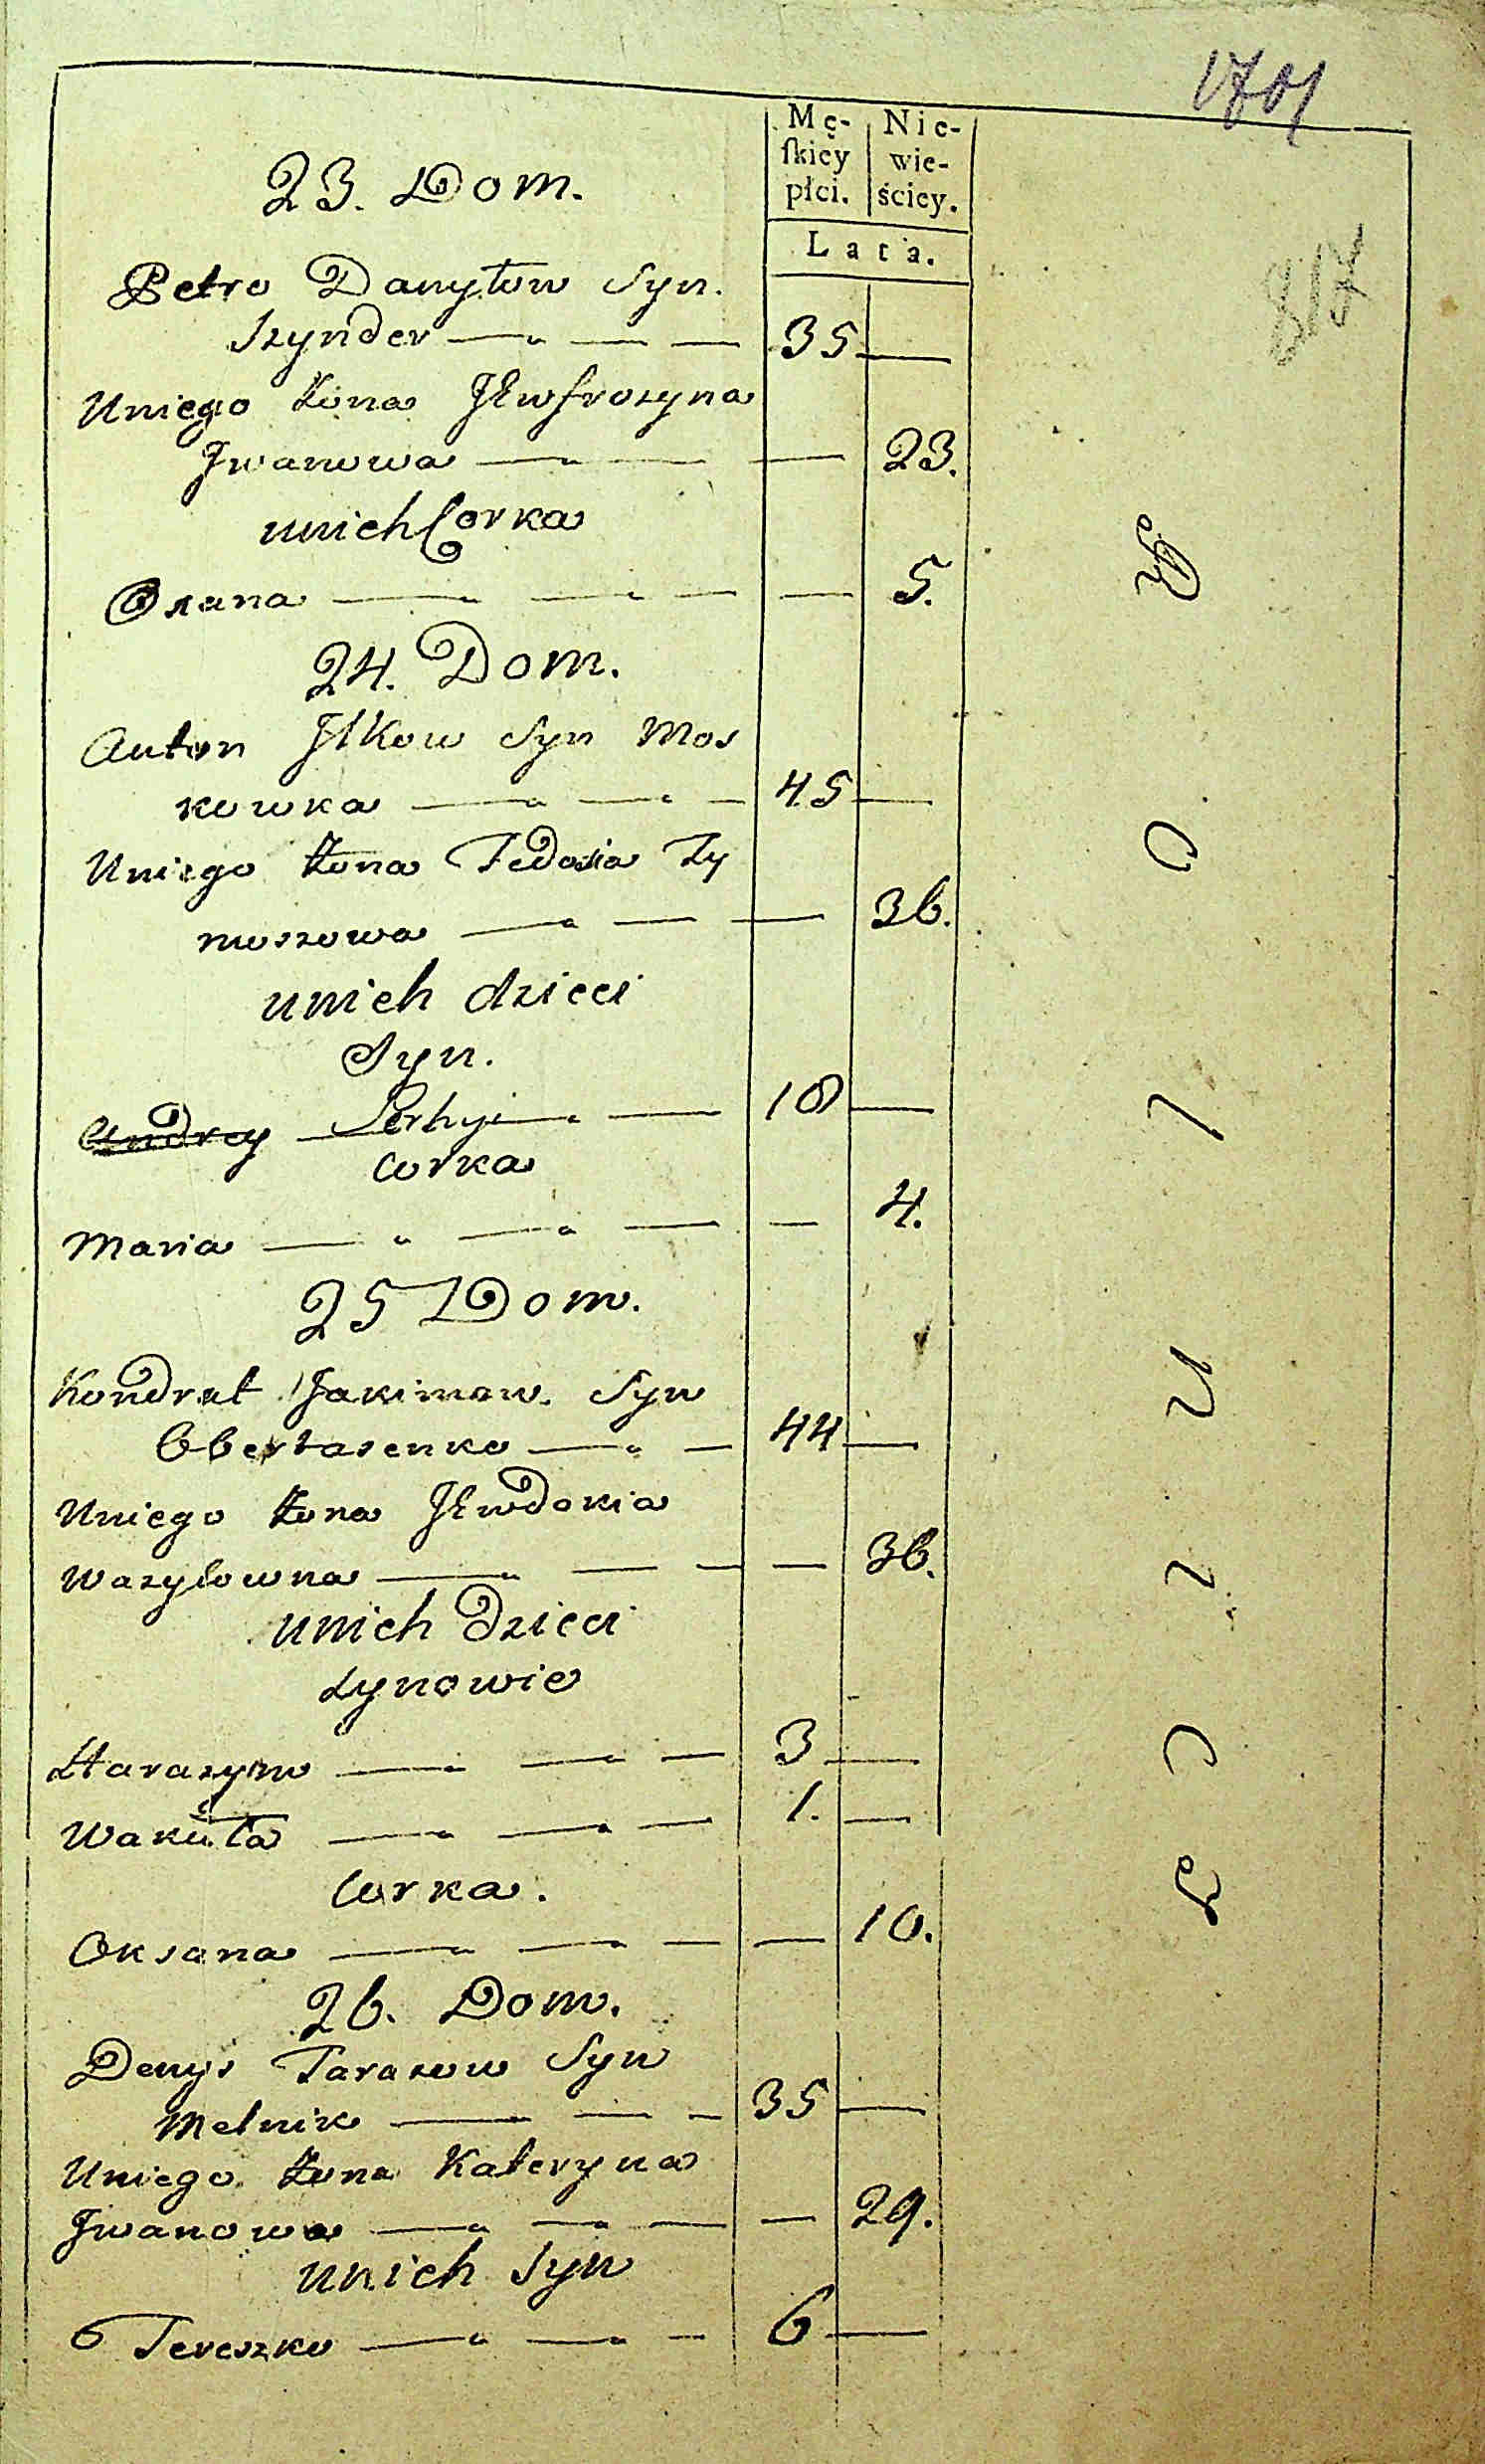 1701
817
Mę-
skiey
płci.
Nie-
wie-
ściey.
Lata.
23. Dom.
Petro Danyłow Syn.
Szynder — — — 35 —
Uniego Żona JEwfrozyna
Jwanowa — — — 23.
unich Corka
Oxana — — — — 5.
24. Dom.
Anton Jlkow Syn Mos
kowka — — — 45 —
Uniego Żona Fedosia Ty
moszowa — — — 36.
unich dzieci
Syn.
Andrey Serhyi — — 18 —
Corka
Maria — — — — 4.
25 Dom.
Kondrat Jakimow. Syn
Obertasenko — — 44 —
Uniego Żona JEwdokia
Wasyłowna — — — — 36.
unich Dzieci
Synowie
Harasym — — — 3 —
Wakuła — — — 1. —
Corka.
Oksana — — — — 10.
26. Dom.
Denys Tarasow Syn
Melnik — — — 35 —
Uniego Żona Kateryna
Jwanowa — — — — 29.
unich Syn
Tereszko — — — 6 —